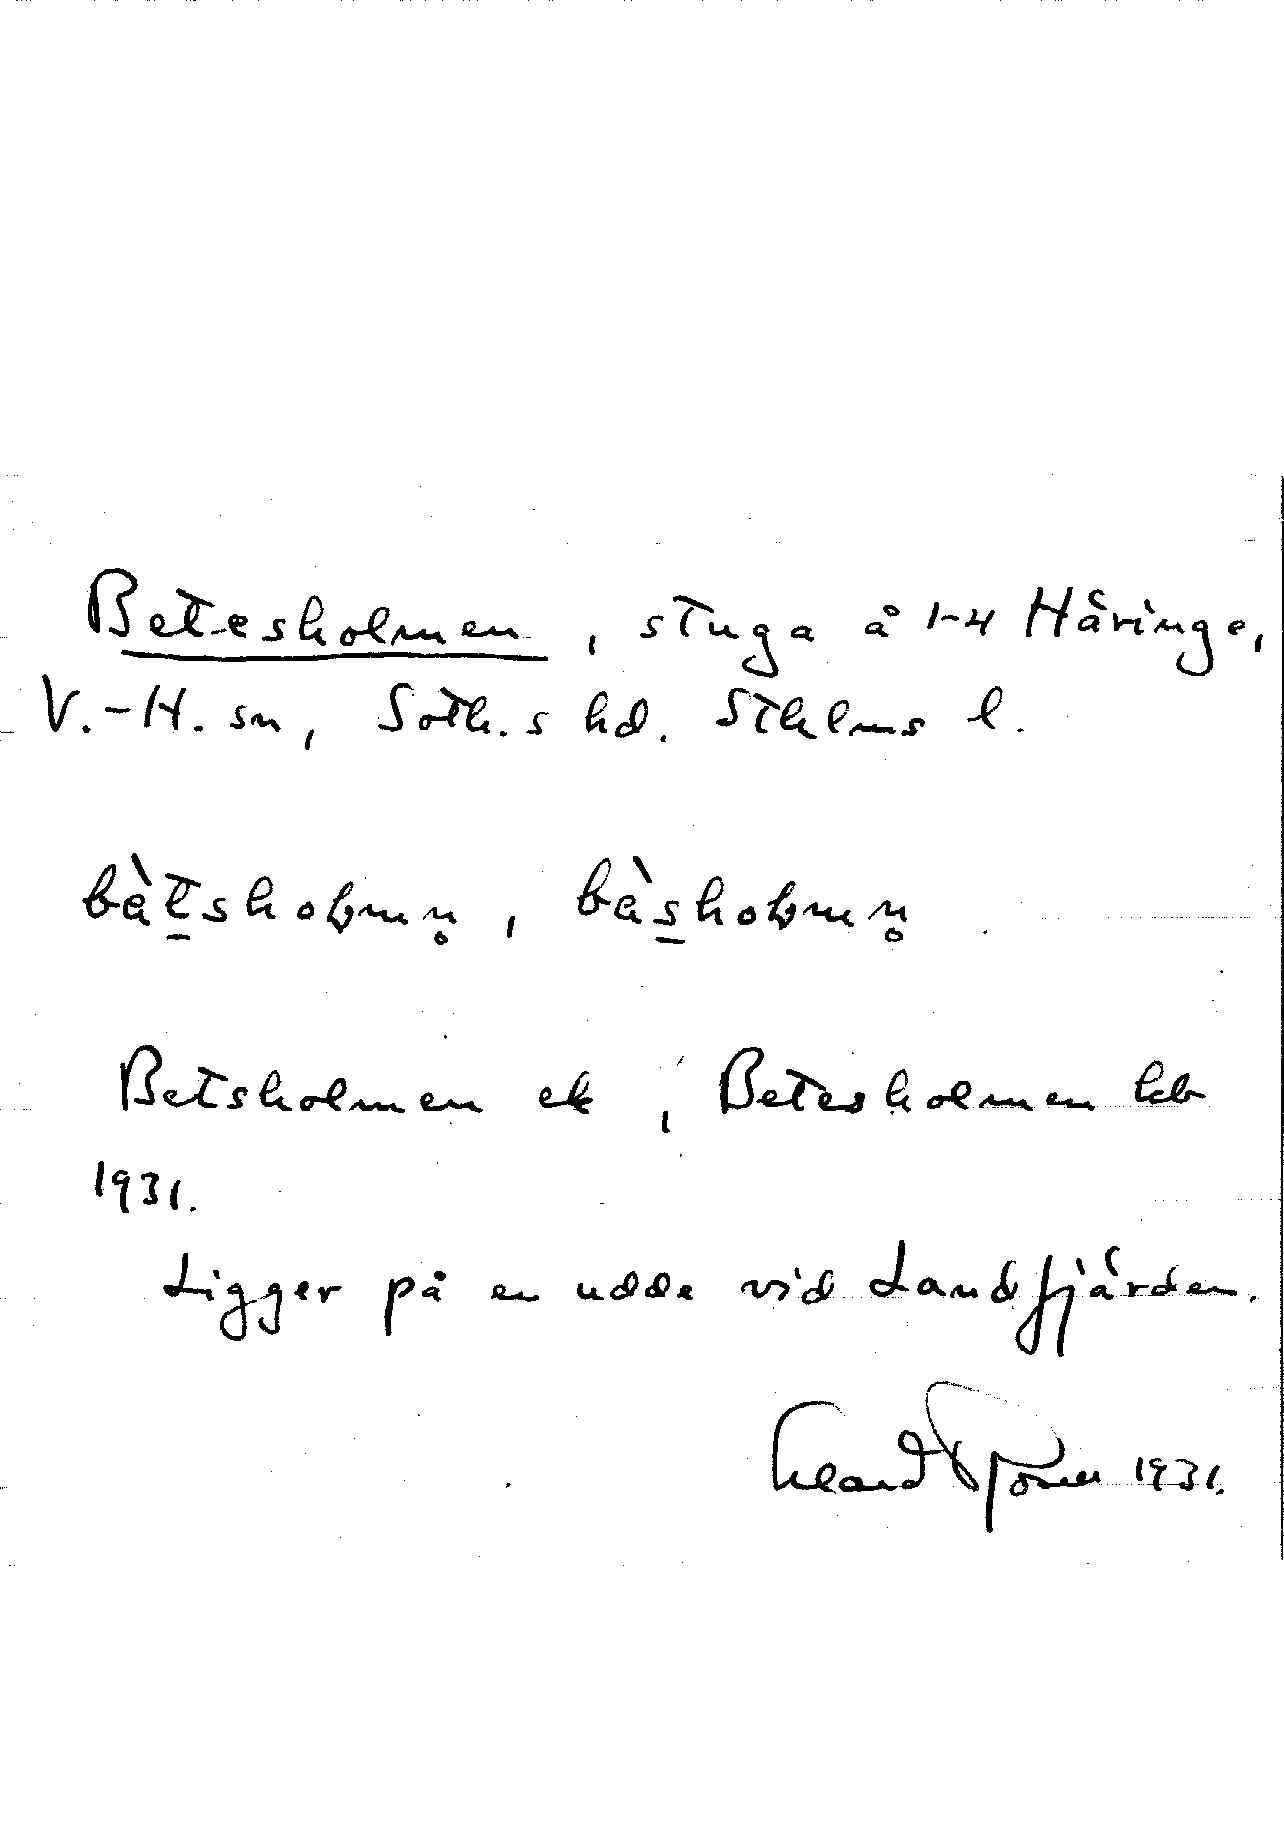 Betesholmen, stuga å 1-4 Häringe,
V.-H. sn, Soth.s hd. Sthlms l.
bètsholmn̥, bèsholmn̥
Betsholmen ek, Betesholmen kb
1931.
Ligger på en udde vid Landfjärden.
1931.